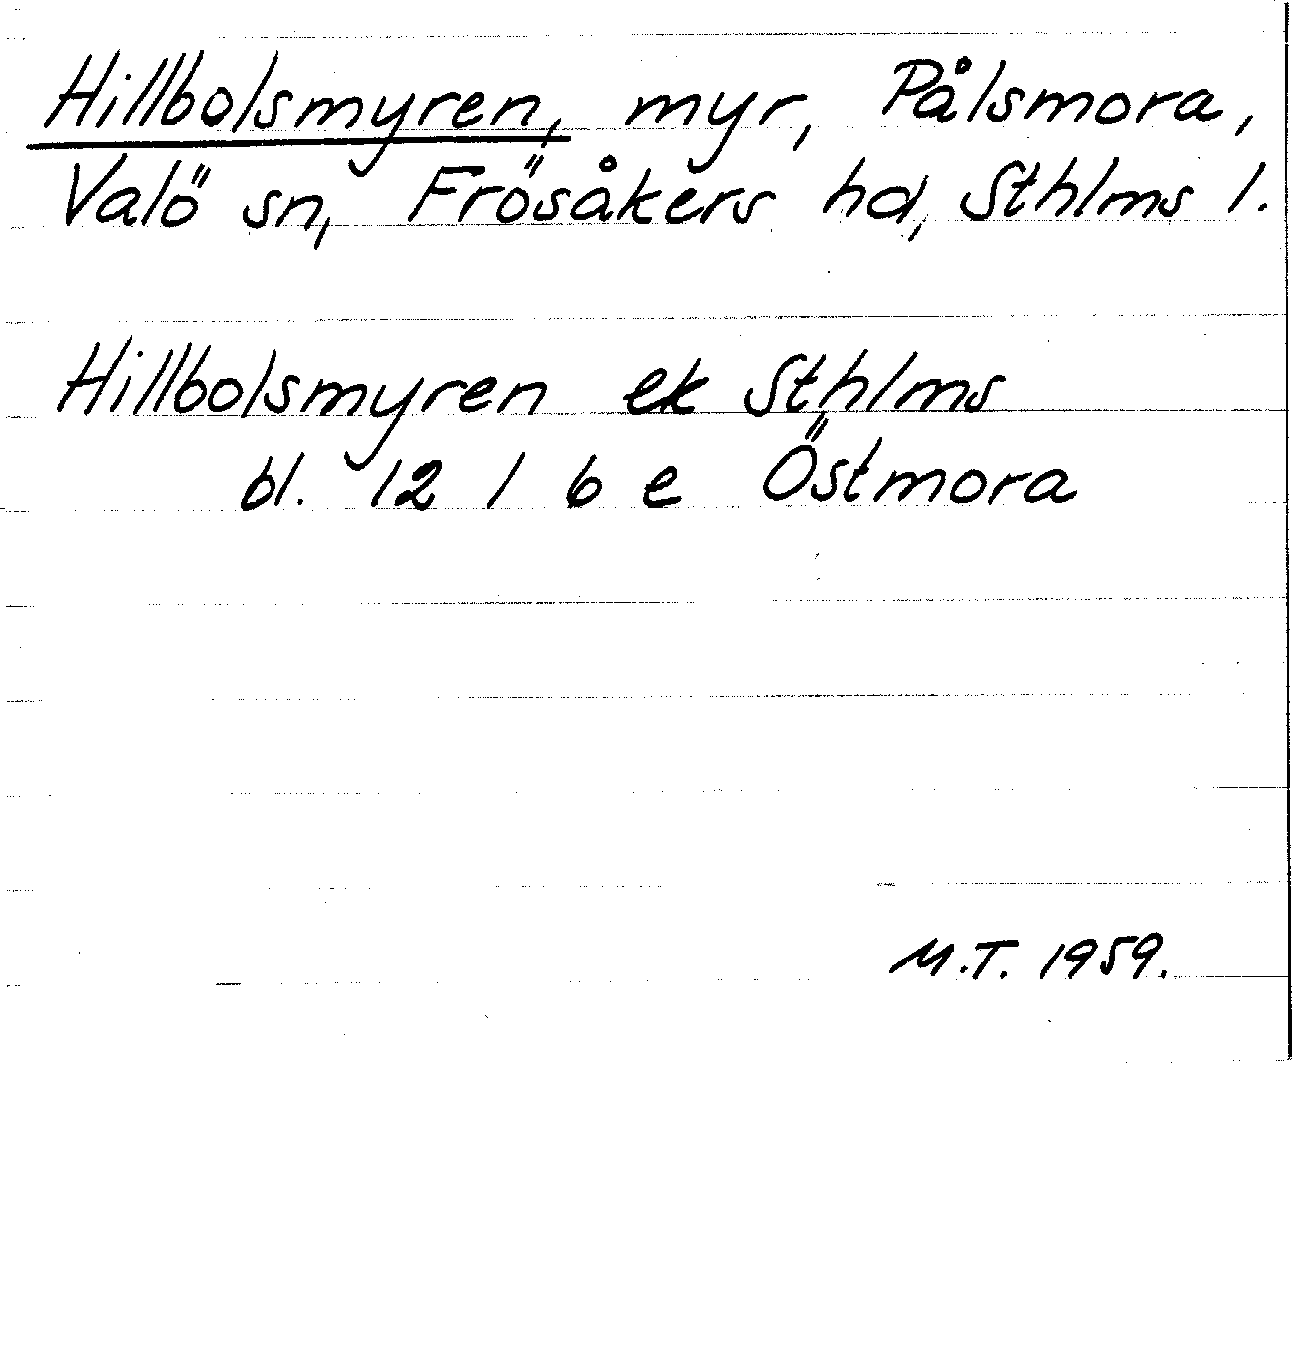 Hillbolsmyren, myr, Pålsmora,
Valö sn, Frösåkers hd, Sthlms l.
Hillbolsmyren ek Sthlms
bl. 12 I 6 e Östmora
M.T. 1959.